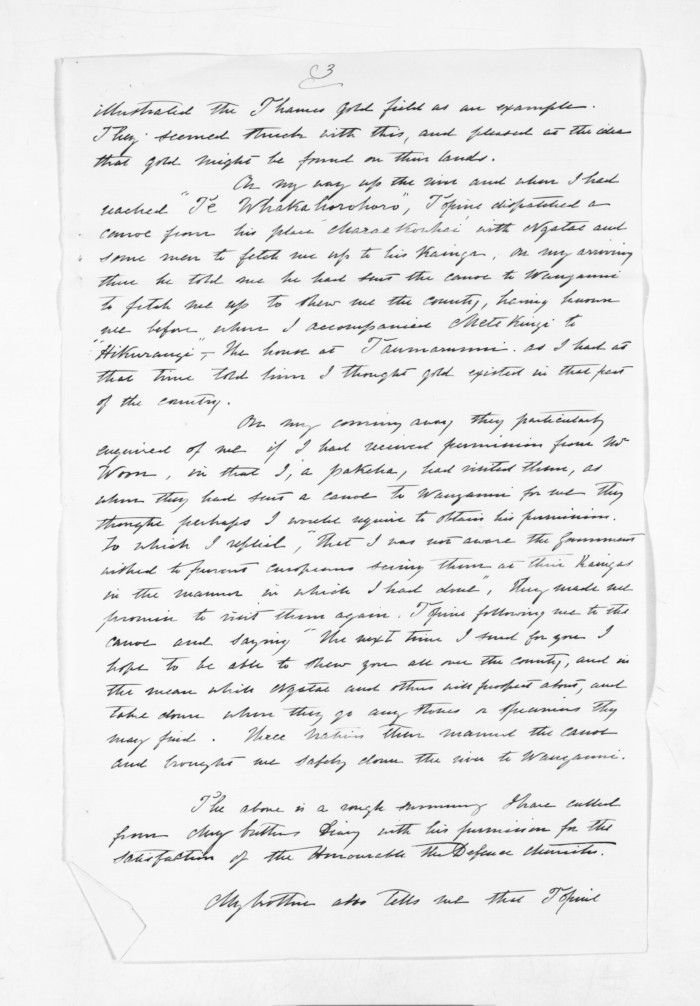 3
illustrated the Thames Gold field as an example.
They seemed struck with this, and pleased at the idea
that gold might be found on their lands.
On my way up the river and when I had
reached "Te Whakahorohoro", Topine dispatched a
canoe from his place with Ngatae and
some men to fetch me up to his Kainga, on my arriving
there he told me he had sent the canoe to Wanganui
to fetch me up to shew me the country, having known
me before when I accompanied Mete Kingi to
"Hikurangi" – the house at Taumarunui. as I had at
that time told him I thought gold existed in that part
of the country.
On my coming away they particularly
enquired of me if I had received permission from Mr
Woon, in that I, a pakeha, had visited them, as
when they had sent a canoe to Wanganui for me they
thought perhaps I would require to obtain his permission.
To which I replied, "that I was not aware the Government
wished to prevent europeans seeing them at their Kaingas
in the manner in which I had done", They made me
promise to visit them again. Topine following me to the
canoe and saying "the next time I send for you I
hope to be able to shew you all over the country, and in
the mean while Ngatae and others will prospect about, and
take down when they go any stones or specimens they
may find. Three natives then manned the canoe
and brought me safely down the river to Wanganui.
The above is a rough summary I have culled
from my brothers Diary with his permission for the
satisfaction of the Honourable the Defence Minister.
My brother also tells me that Topine